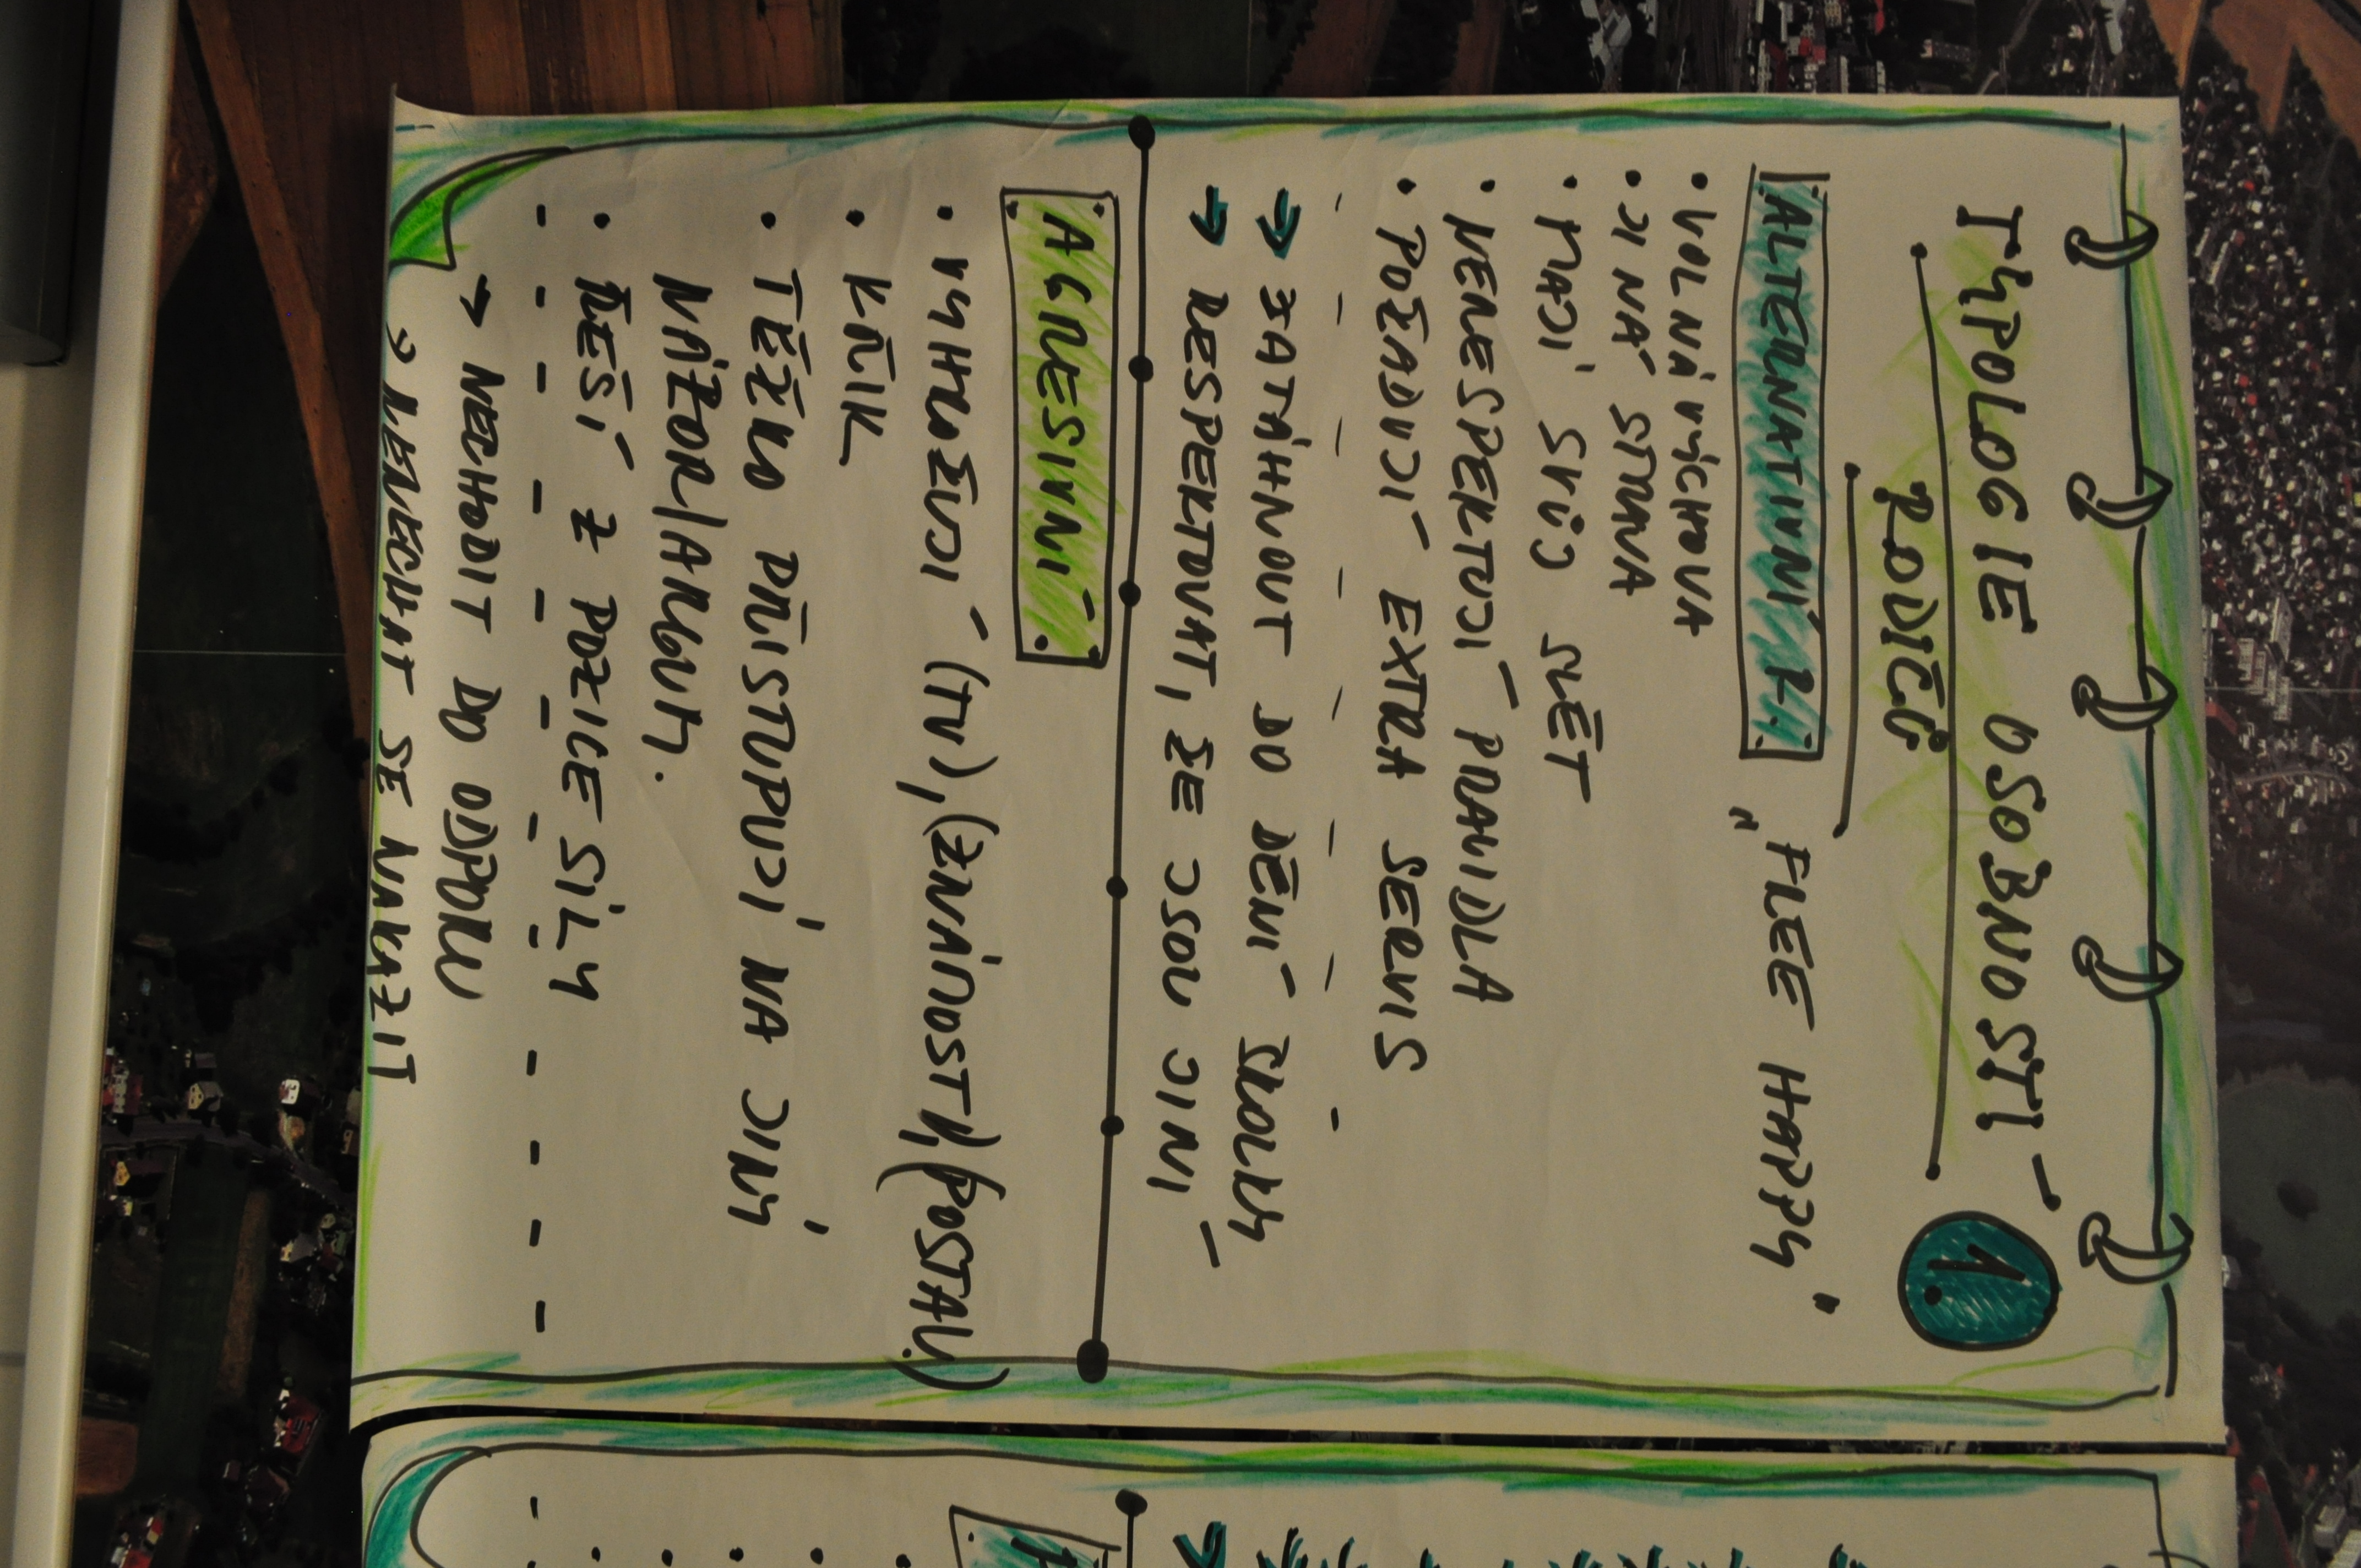 TYPOLOGIE OSOBNOSTÍ
RODIČŮ
1.
ALTERNATIVNÍ R. „FREE HAPPY"
• VOLNÁ VÝCHOVA
• JINÁ STRAVA
• MAJÍ SVŮJ SVĚT
• NERESPEKTUJÍ PRAVIDLA
• POŽADUJÍ EXTRA SERVIS
→ ZATÁHNOUT DO DĚNÍ ŠKOLY
→ RESPEKTOVAT, ŽE JSOU JINÍ
AGRESIVNÍ
• VYHROŽUJÍ (TV), (ZNÁMOSTI), (POSTAV.)
• KŘIK
• TĚŽKO PŘISTUPUJÍ NA JINÝ
NÁZOR/ARGUM.
• ŘEŠÍ Z POZICE SÍLY
→ NECHODIT DO ODPORU
→ NENECHAT SE NAKAZIT